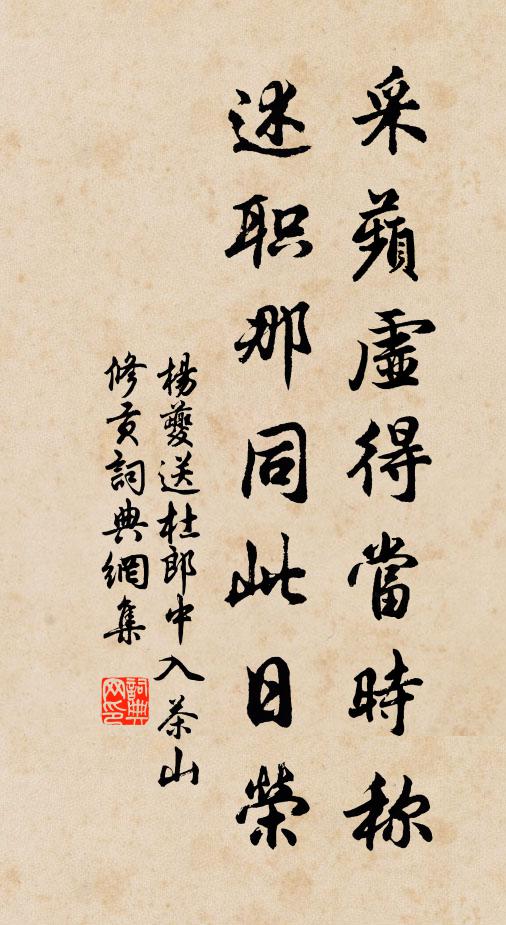 采蘋虛得當時称
述职那同此日榮
楊夔送杜郎中入茶山
修贡詞典網集
詞典网印